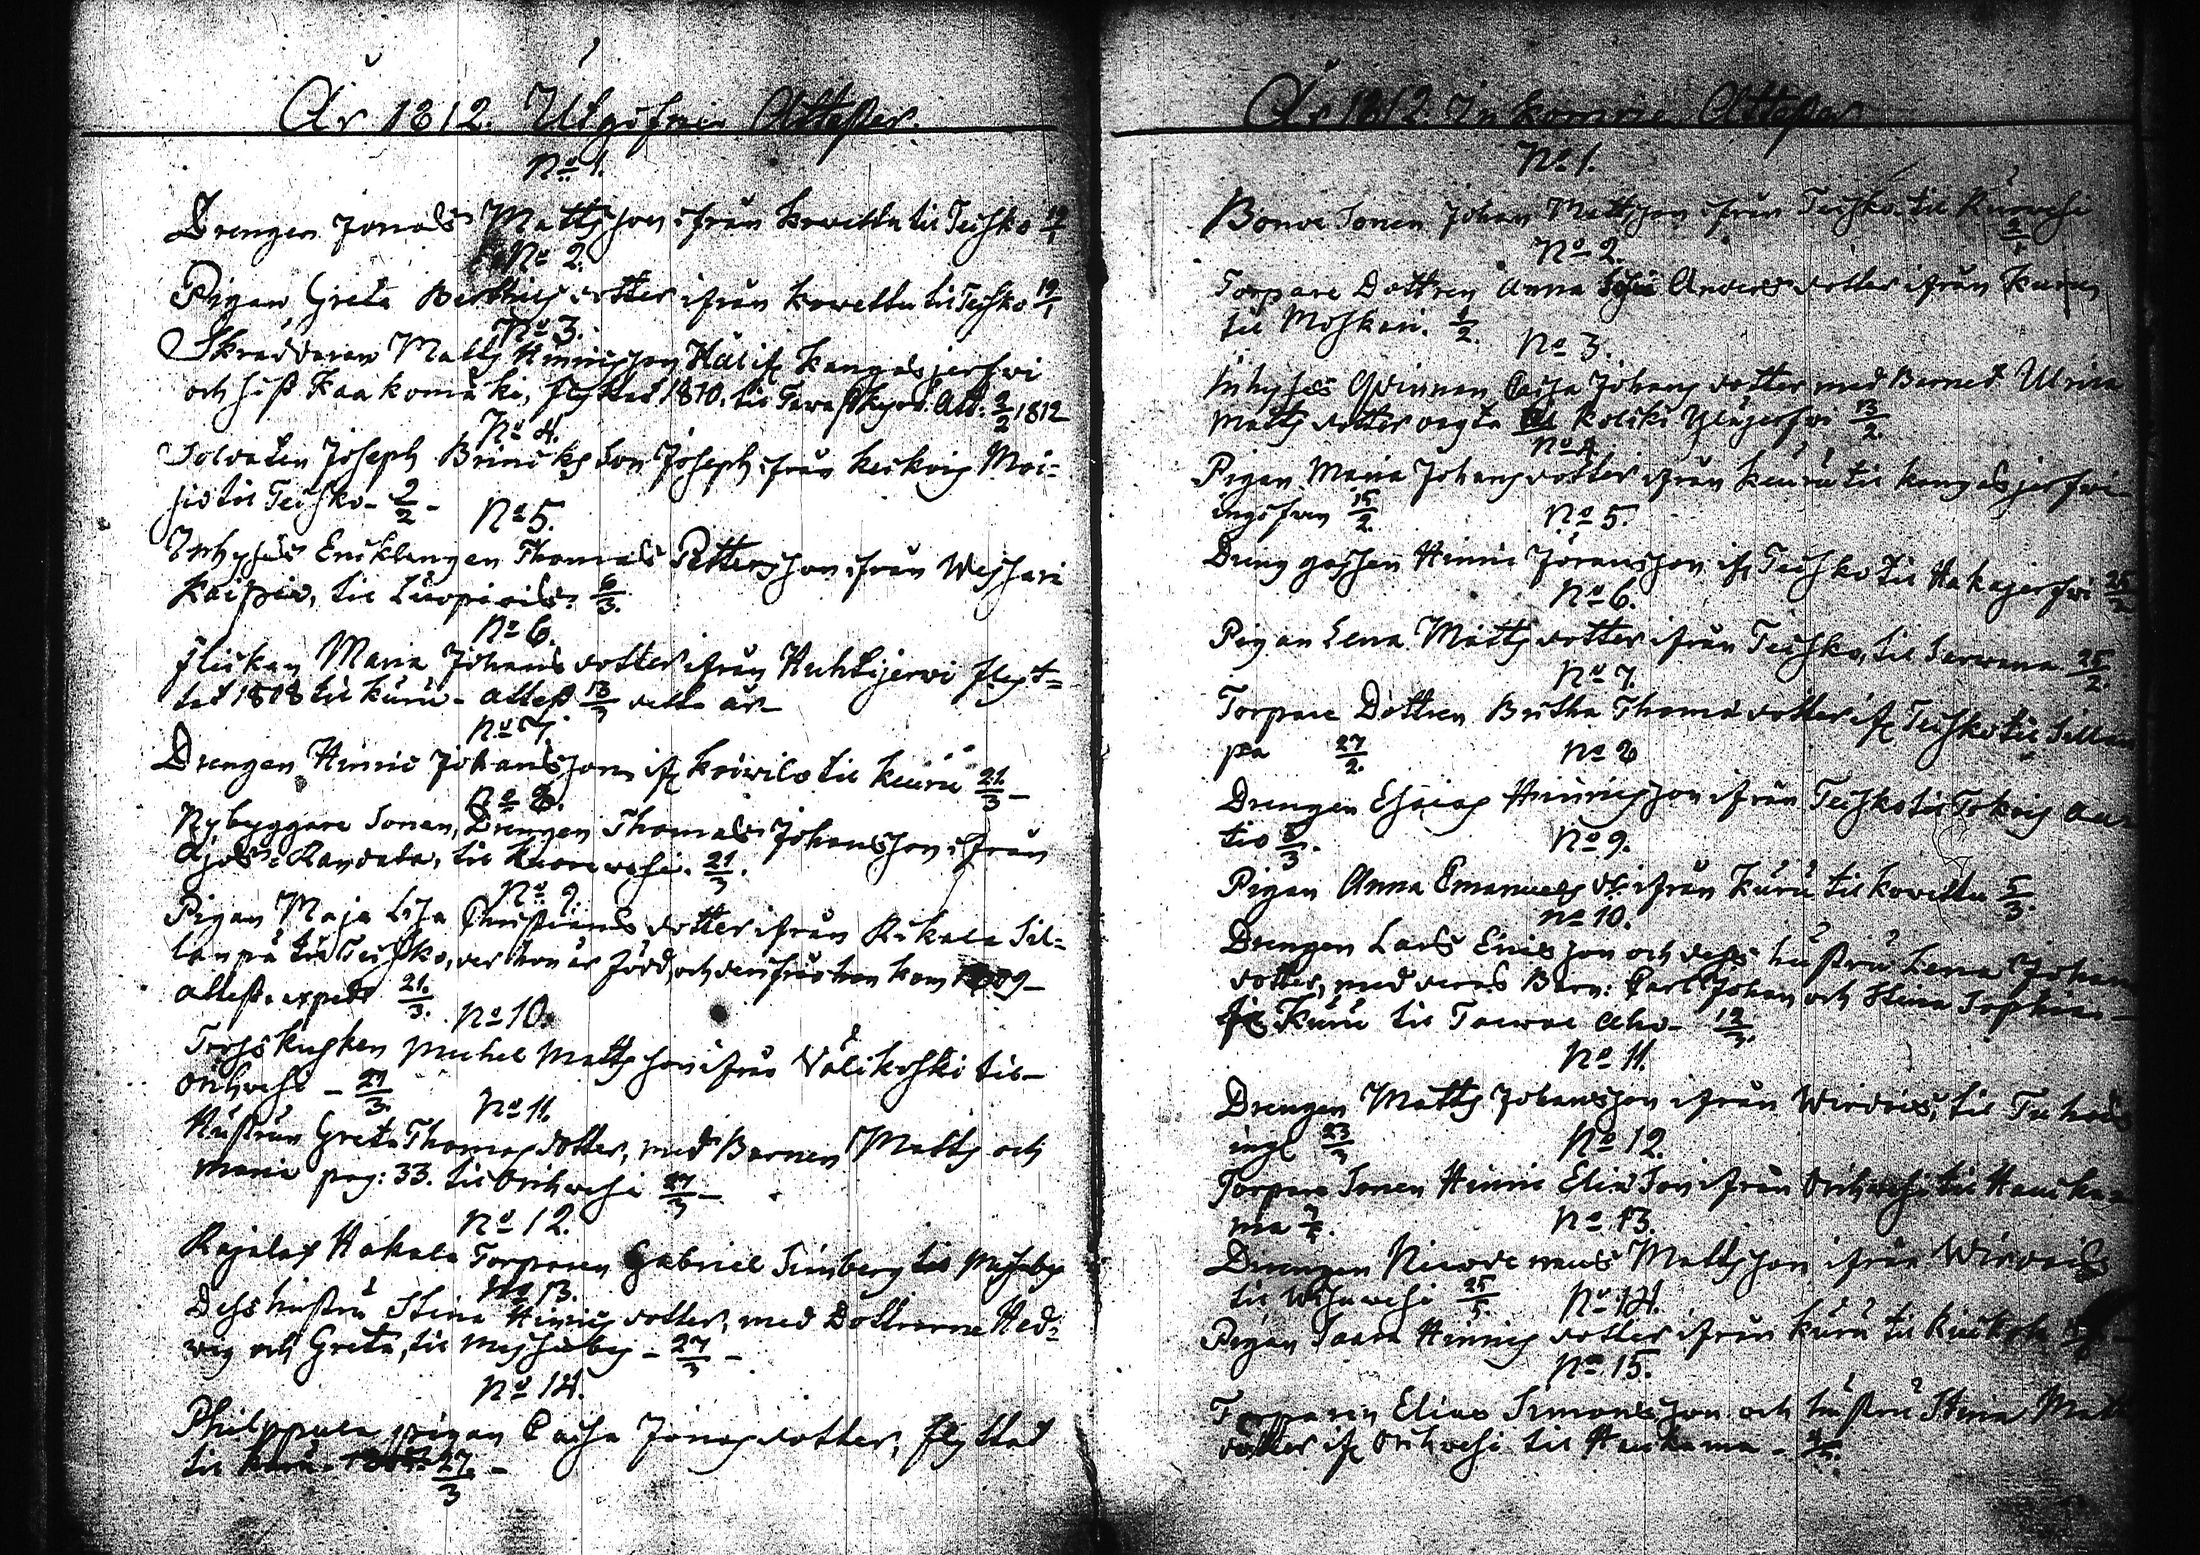 År 1812. Utgifne Attester.
No 1.
Drengen Jonas Mattsson ifrån Kowettu til Teisko 19/1
No 2.
Pigan Greta Berthils dotter ifrån Kowettu til Teisko 19/1
No 3.
Skräddaren Matts Hinricsson Hälif Kangasjerfwi
och hust Kaakomäki, flyttat 1810. til Tawastkyrö. Att. 2/2 1812
No 4.
Soldaten Joseph Brincks Son Joseph ifrån Keskois Moi=
sio til Teisko - 2/2 -
No 5.
Inhyses Encklingen Thomas Pettersson ifrån Wessari
Kaipio, til Luopiois: 6/3.
No 6.
Flickan Maria Johans dotter ifrån Huhtijerwi flyt=
tat 1808 til Kuru - attest 13/3 detta år -
No 7.
Drengen Hinric Johansson if Koiwilo til Keuru 21/3 -
No 8.
Nybyggare Sonen, Drengen Thomas Johansson ifrån
Ajos Randala, til Kuorewesi. 21/3.
No 9.
Pigan Maja Lisa Christians dotter ifrån Rikala Sil=
lanpä til Teisko, der hon är född, och derifrån hon kom 1809 -
attest. exped 21/3.
No 10.
Torps Kusken Michel Mattsson ifrån Välikoski til -
Orihwesi - 21/3.
No 11.
Hustrun Greta Thomas dotter, med Barnen Matts och
Maria pag: 33. til Orihwesi 27/3 -
No 12.
Rajalax Hakala Torparen Gabriel Simberg til Messuby
No 13.
Dess hustru Stina Hinrics dotter, med Döttrarne Hed=
wig och Greta, til Messuby - 27/3 -
No 14.
Philppula pigan Caisa Jonas dotter, flyttat
til Kuru - 27/3 -
År 1812. Inkomne Attester
No 1.
Bonde Sonen Johan Mattsson ifrån Teisko til Ruowesi
2/1
No 2.
Torpare Dottren Anna Anders dotter ifrån Kuru
til Moskari. 1/2.
No 3.
Inhyses Qvinnan Caisa Johans dotter med Barnet Ulrica
Matts dotter oägta til Kolcki Yläjerfwi 13/2
No 4
Pigan Maria Johans dotter ifrån Keuru til Kangasjerfwi
ingifwen 15/2.
No 5.
Dreng gossen Hinric Jöransson if Teisko til Hakajerfwi 25/2
No 6.
Pigan Lena Matts dotter ifrån Teisko, til Serwana 25/2.
No 7.
Torpare Dottren Britha Thoma dotter if Teisko til Sillan
pä 27/2.
No 8
Drengen Esaias Hinricsson ifrån Teisko til Tokois Au
tio 5/3.
No 9.
Pigan Anna Emanuels dr ifrån Kuru til Kowettu 5/3.
No 10.
Drengen Lars Ericsson och dess hustru Lena Johans
dotter, med deras Barn: Carl Johan och Stina Sophia -
if Kuru til Taewal Aho - 19/3.
No 11.
Drengen Matts Johansson ifrån Wirdois, til Tuhois
ingl 23/3
No 12.
Torpare Sonen Hinric Elia Son ifrån Orihwesi til Haukka
ma
No 13.
Drengen Nicodemus Mattsson ifrån Wirdois
til Wisuwesi 25/5.
No 14.
Pigan Saara Hinrics dotter ifrån Kuru til Kuckola
No 15.
Torparen Elias Simonsson och hustru Stina Matts
dotter if Orihwesi til Haukama -